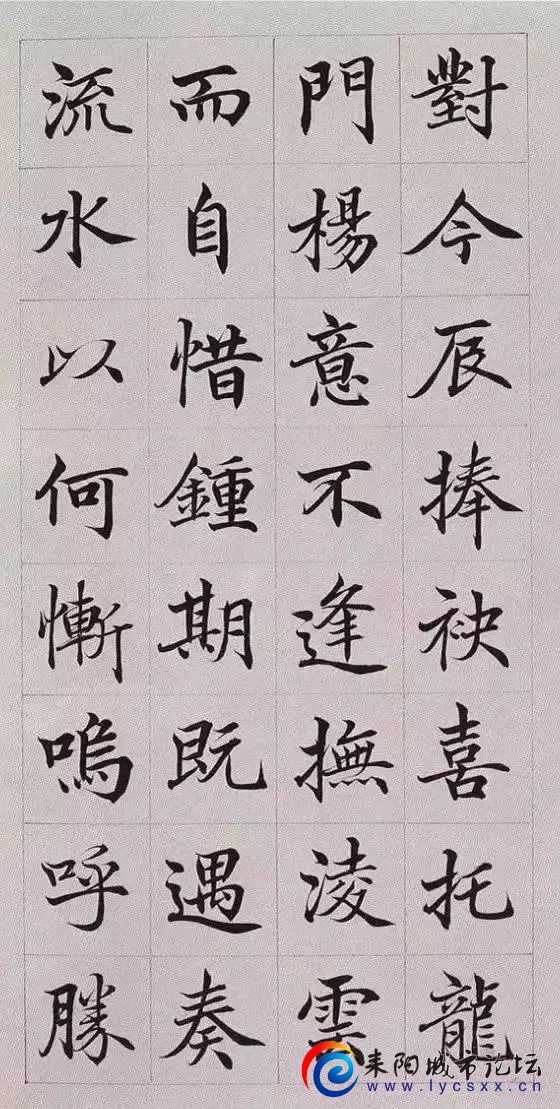 對今辰捧袂喜托龍
門楊意不逢撫淩雲
而自惜鍾期既遇奏
流水以何慚嗚呼勝
耒阳城市论坛
www.lycsxx.cn